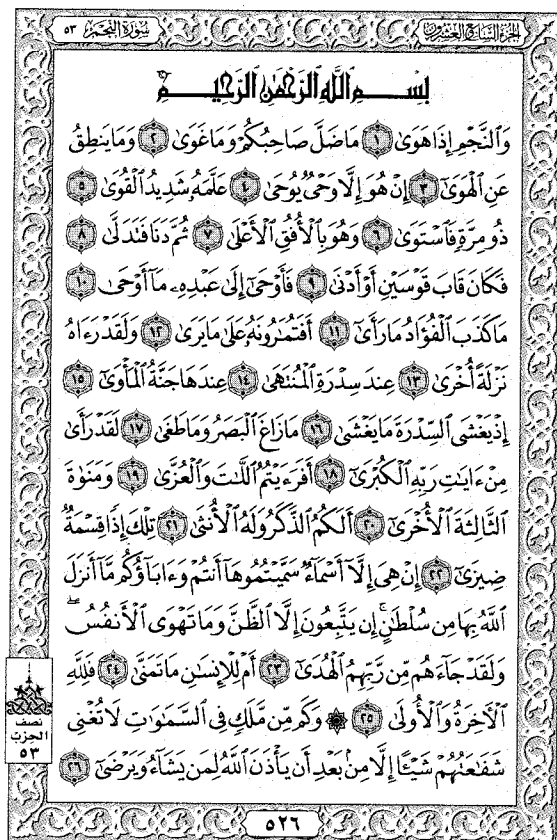 الجزء السابع والعشرون
سورة النجم ٥٣
بِسْمِ ٱللَّهِ ٱلرَّحْمَٰنِ ٱلرَّحِيمِ
وَٱلنَّجْمِ إِذَا هَوَىٰ ١ مَا ضَلَّ صَاحِبُكُمْ وَمَا غَوَىٰ ٢ وَمَا يَنطِقُ
عَنِ ٱلْهَوَىٰٓ ٣ إِنْ هُوَ إِلَّا وَحْىٌ يُوحَىٰ ٤ عَلَّمَهُۥ شَدِيدُ ٱلْقُوَىٰ ٥
ذُو مِرَّةٍ فَٱسْتَوَىٰ ٦ وَهُوَ بِٱلْأُفُقِ ٱلْأَعْلَىٰ ٧ ثُمَّ دَنَا فَتَدَلَّىٰ ٨
فَكَانَ قَابَ قَوْسَيْنِ أَوْ أَدْنَىٰ ٩ فَأَوْحَىٰٓ إِلَىٰ عَبْدِهِۦ مَآ أَوْحَىٰ ١٠
مَا كَذَبَ ٱلْفُؤَادُ مَا رَأَىٰٓ ١١ أَفَتُمَٰرُونَهُۥ عَلَىٰ مَا يَرَىٰ ١٢ وَلَقَدْ رَءَاهُ
نَزْلَةً أُخْرَىٰ ١٣ عِندَ سِدْرَةِ ٱلْمُنتَهَىٰ ١٤ عِندَهَا جَنَّةُ ٱلْمَأْوَىٰٓ ١٥
إِذْ يَغْشَى ٱلسِّدْرَةَ مَا يَغْشَىٰ ١٦ مَا زَاغَ ٱلْبَصَرُ وَمَا طَغَىٰ ١٧ لَقَدْ رَأَىٰ
مِنْ ءَايَٰتِ رَبِّهِ ٱلْكُبْرَىٰٓ ١٨ أَفَرَءَيْتُمُ ٱللَّٰتَ وَٱلْعُزَّىٰ ١٩ وَمَنَوٰةَ
ٱلثَّالِثَةَ ٱلْأُخْرَىٰٓ ٢٠ أَلَكُمُ ٱلذَّكَرُ وَلَهُ ٱلْأُنثَىٰ ٢١ تِلْكَ إِذًا قِسْمَةٌ
ضِيزَىٰٓ ٢٢ إِنْ هِىَ إِلَّآ أَسْمَآءٌ سَمَّيْتُمُوهَآ أَنتُمْ وَءَابَآؤُكُم مَّآ أَنزَلَ
ٱللَّهُ بِهَا مِن سُلْطَٰنٍ ۚ إِن يَتَّبِعُونَ إِلَّا ٱلظَّنَّ وَمَا تَهْوَى ٱلْأَنفُسُ ۖ
وَلَقَدْ جَآءَهُم مِّن رَّبِّهِمُ ٱلْهُدَىٰٓ ٢٣ أَمْ لِلْإِنسَٰنِ مَا تَمَنَّىٰ ٢٤ فَلِلَّهِ
ٱلْءَاخِرَةُ وَٱلْأُولَىٰ ٢٥ ۞ وَكَم مِّن مَّلَكٍ فِى ٱلسَّمَٰوَٰتِ لَا تُغْنِى
شَفَٰعَتُهُمْ شَيْـًٔا إِلَّا مِنۢ بَعْدِ أَن يَأْذَنَ ٱللَّهُ لِمَن يَشَآءُ وَيَرْضَىٰٓ ٢٦
نصف
الحزب
٥٣
٥٢٦